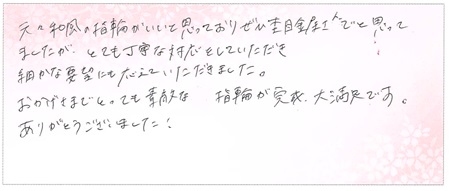 元々和風の指輪がいいと思っておりぜひ杢目金屋さんでと思って
ましたが、とても丁寧な対応をしていただき
細かな要望にも応えていただきました。
おかげさまでとっても素敵な 指輪が完成、大満足です。
ありがとうございました!